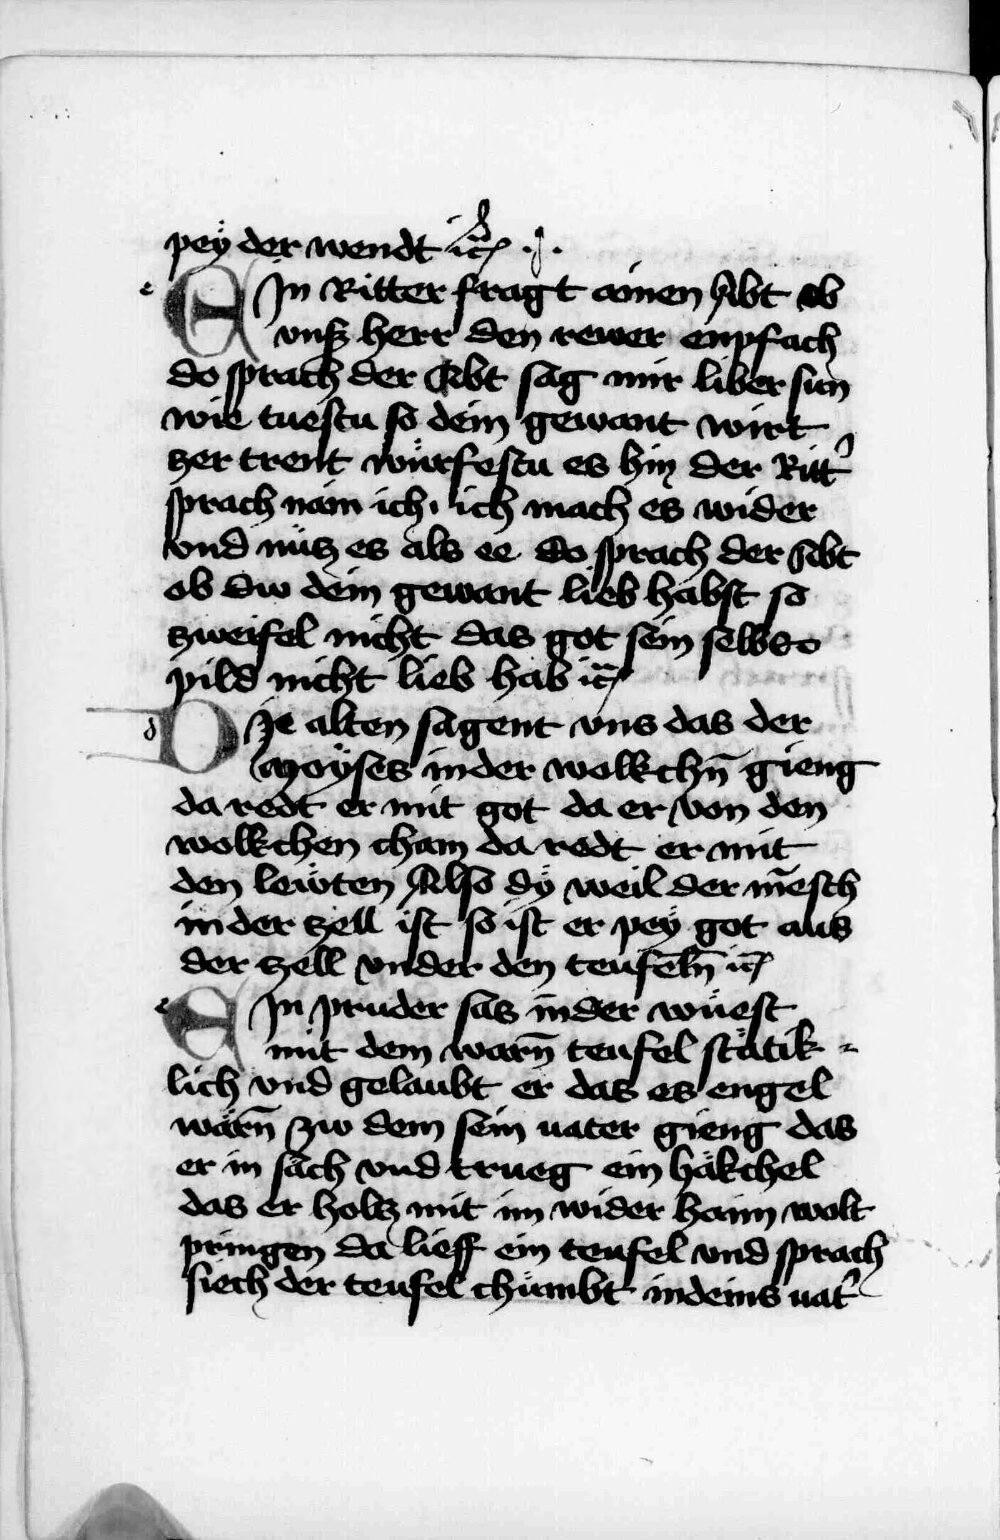 peÿ der wendt ꝛc̄ ·:·
EIn Ritter fragt ainen Abt ob
vnß herr den rewer enpfach
do sprach der Abt sag mir liber sun
wie tuestu so dein gewant wirt
zer trent würfestu es hin der Ritt᷑
sprach nain ich · ich mach es wider
vnd nütz es als ee Do sprach der Abt
ob dw dein gewant lieb habst so
zweifel nicht das got sein selbs
pild nicht lieb hab ꝛc̄
DIe alten sagent vns das der
Moÿses in der wolkchn̄ gieng
da redt er mit got da er von den
wolkchen cham da redt er mit
den lewten Also dÿ weil der mēsch
in der zell ist so ist er peÿ got aus
der zell vnder den teufeln̄ ꝛc̄
EIn pruder sas in der wüest
mit dem warn̄ teufel stätik-
lich vnd gelaubt er das es engel
wärn̄ zw dem sein uater gieng das
er in säch vnd trueg ein häkchel
das er holtz mit im wider haim wolt
pringen da lieff ein teufel vnd sprach
siech der teufel chümbt in deins uat᷑